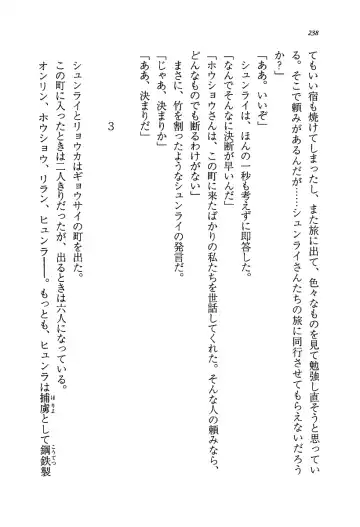 238
てもいい宿も焼けてしまったし、また旅に出て、色々なものを見て勉強し直そうと思ってい
る。そこで頼みがあるんだが……シュンライさんたちの旅に同行させてもらえないだろう
か?」
「ああ。いいぞ」
シュンライは、ほんの一秒も考えずに即答した。
「なんでそんなに決断が早いんだ」
「ホウショウさんは、この町に来たばかりの私たちを世話してくれた。そんな人の頼みなら、
どんなものでも断るわけがない」
まさに、竹を割ったようなシュンライの発言だ。
「じゃあ、決まりか」
「ああ、決まりだ」
3
シュンライとリョウカはギョウサイの町を出た。
この町に入ったときは二人きりだったが、出るときは六人になっている。
オンリン、ホウショウ、リラン、ヒュンラ――。もっとも、ヒュンラは捕虜として鋼鉄製